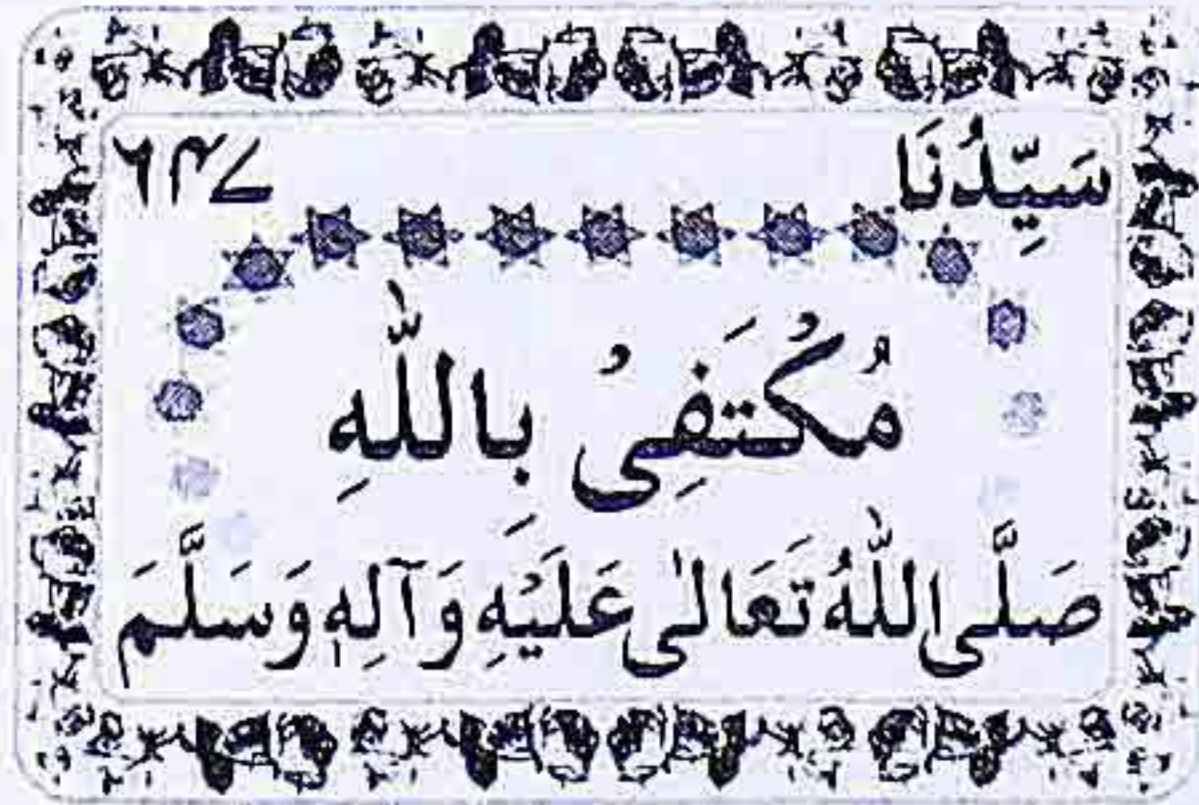 سَيِّدُنَا ۶۴۷
مُكْتَفِىُ بِاللّٰهِ
صَلَّى اللّٰهُ تَعَالٰى عَلَيْهِ وَآلِهٖ وَسَلَّمَ